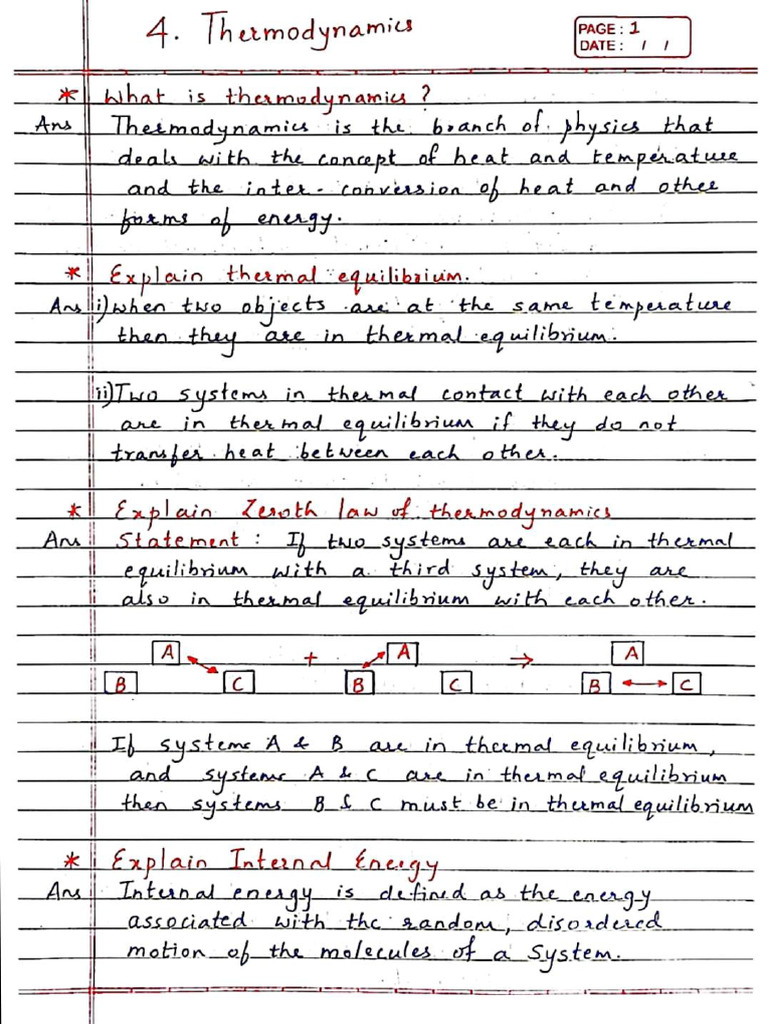 4. Thermodynamics
PAGE : 1
DATE : / /
* What is thermodynamics ?
Ans Thermodynamics is the branch of physics that
deals with the concept of heat and temperature
and the inter-conversion of heat and other
forms of energy.
* Explain thermal equilibrium.
Ans i) when two objects are at the same temperature
then they are in thermal equilibrium.
ii) Two systems in thermal contact with each other
are in thermal equilibrium if they do not
transfer heat between each other.
* Explain Zeroth law of thermodynamics
Ans Statement : If two systems are each in thermal
equilibrium with a third system, they are
also in thermal equilibrium with each other.
A + A → A
B C B C B C
If systems A & B are in thermal equilibrium,
and systems A & C are in thermal equilibrium
then systems B & C must be in thermal equilibrium
* Explain Internal Energy
Ans Internal energy is defined as the energy
associated with the random, disordered
motion of the molecules of a system.